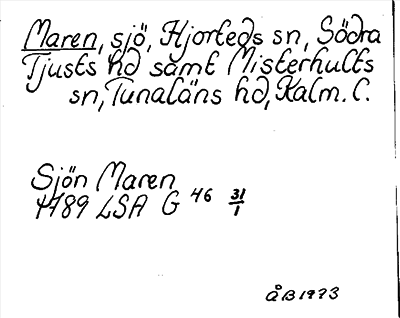 Maren, sjö, Hjorteds sn, Södra
Tjusts hd samt Misterhults
sn, Tunaläns hd, Kalm. l.
Sjön Maren
1789 LSA G 46 31/1
ÅB 1973